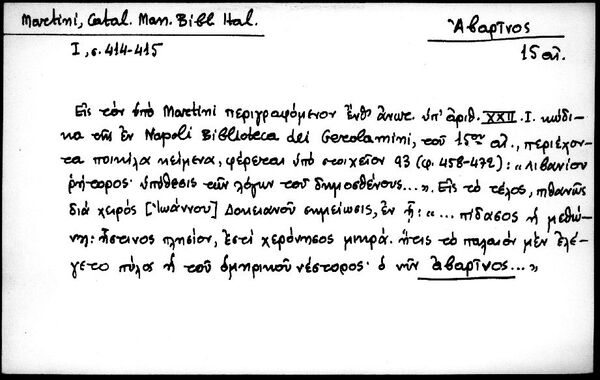 Martini, Catal. Man. Bibl. Ital.
Ἀβαρῖνος
I, σ. 414-415
15 αἰ.
Εἰς τὸν ὑπὸ Martini περιγραφόμενον ἔνθ' ἀνωτ. ὑπ' ἀριθ. XXII. I. κώδι-
κα τῆς ἐν Napoli Biblioteca dei Gerolamini, τοῦ 15ου αἰ., περιέχον-
τα ποικίλα κείμενα, φέρεται ὑπὸ στοιχεῖον 93 (φ. 458-472): "Λιβανίου
ῥήτορος· ὑπόθεσις τῶν λόγων τοῦ δημοσθένους...". Εἰς τὸ τέλος, πιθανῶς
διὰ χειρός [Ἰωάννου] Δοκειανοῦ σημείωσις, ἐν ᾗ: "... πίδασος ἡ μεθώ-
νη: ἧστινος πλησίον, ἐστὶ χερόνησος μικρά. ἥτις τὸ παλαιόν μὲν ἐλέ-
γετο πύλος ἡ τοῦ ὁμηρικοῦ νέστορος· ὁ νῦν ἀβαρῖνος..."